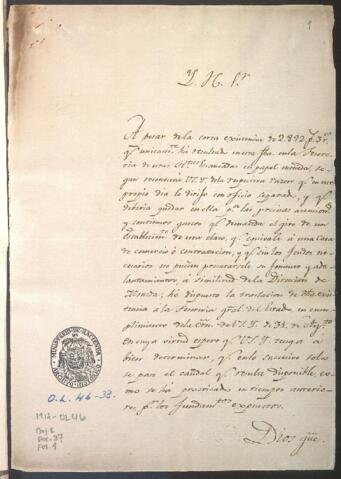 1
Y. H. Sr.
A pesar de la corta existencia de 2.892 p. 3 r.
q. unicam.te há resultado en esta fha. en la Tesore-
ria de mi
en papel moneda, se-
gun reconocerá V.Y. de la respectiva razon q. en este
propio dia le dirijo con oficio separado, y q.
deberia quedar en ella p.a las precisas atencion.s
y continuos gastos q. demanda el giro de un
Establecim.to de esta clase, q. equivale á una Casa
de comercio ó contratacion, y q. sin los fondos ne-
cesarios no puede procurarse su fomento y ade-
lantamiento, á similitud de la Direccion de
há dispuesto la traslacion de dha. exis-
tencia á la Tesoreria gral. del Estado, en cum-
plimiento de la orn. de V.Y. de 31. de Ag.to
En cuya virtud espero q. V.Y. tenga á
bien determinar, q. en lo sucesivo solo
se pase el caudal q. resulte disponible, co-
mo se há practicado en tiempos anterio-
res, p.r los fundam.tos expuestos.
Dios gūe.
O.L. 46-33.
MH-OL46
Caj. 6
Doc-37
Fol. 1